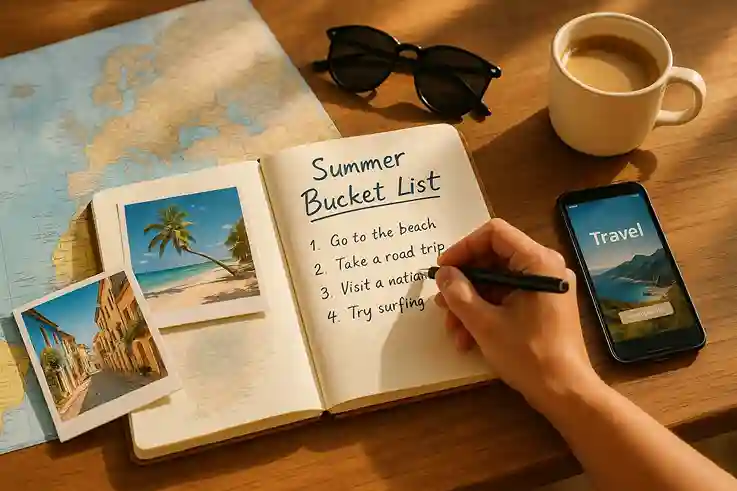 Summer
Bucket List
1. Go to the beach
2. Take a road trip
3. Visit a nation
4. Try surfing
Travel